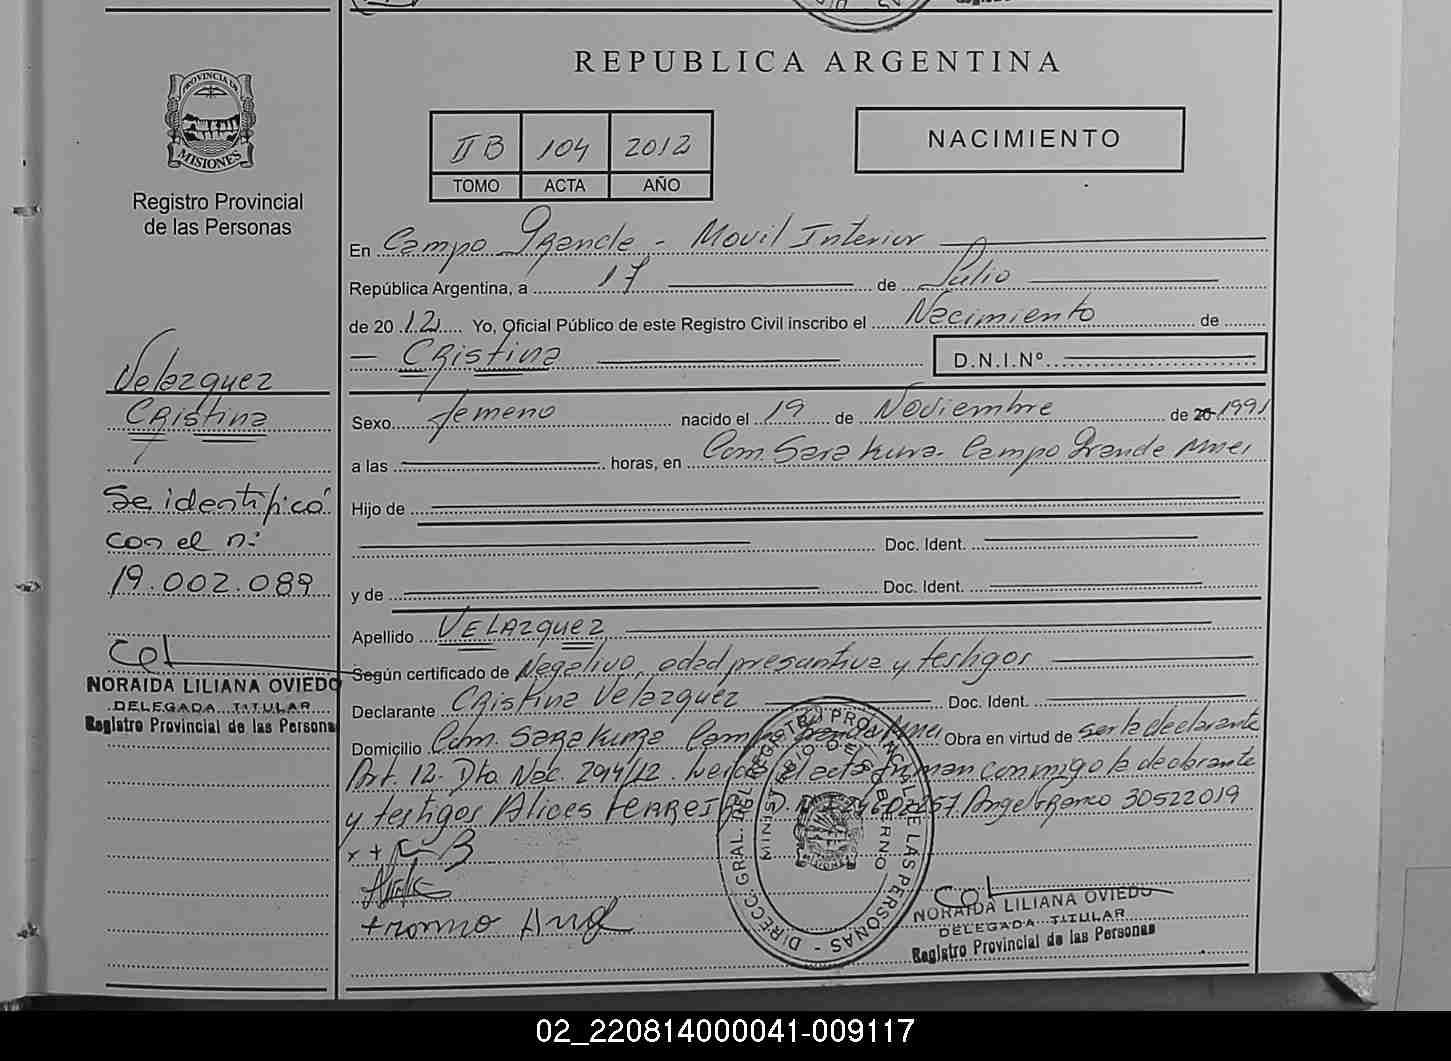 REPUBLICA ARGENTINA
PROVINCIA DE
MISIONES
Registro Provincial
de las Personas
II B 104 2012
TOMO ACTA AÑO
NACIMIENTO
En Campo Grande - Movil Interior
República Argentina, a 17 de Julio
de 2012 Yo, Oficial Público de este Registro Civil inscribo el Nacimiento de
Cristina D.N.I.Nº
Velazquez
Cristina
Sexo femeno nacido el 19 de Noviembre de 20 1991
a las horas, en Com. Sara Kura. Campo Grande Mnes
Se identificó
con el nº
19.002.089
Hijo de
Doc. Ident.
y de Doc. Ident.
Apellido VELAZquez
Según certificado de Negativo, edad presuntiva y testigos
NORAIDA LILIANA OVIEDO
DELEGADA TITULAR
Registro Provincial de las Persona
Declarante Cristina Velazquez Doc. Ident.
Domicilio Com. Sara Kura Campo Grande Mnes Obra en virtud de ser la declarante
Art. 12- Dto. Nac. 2014/12. el acta firman conmigo la declarante
y testigos Alices FERREIRA Angel Franco 30522019
DIRECC. GRAL. DEL REGISTRO PROVINCIAL DE LAS PERSONAS -
MINISTERIO DE GOBIERNO
MISIONES
NORAIDA LILIANA OVIEDO
DELEGADA TITULAR
Registro Provincial de las Personas
02_220814000041-009117